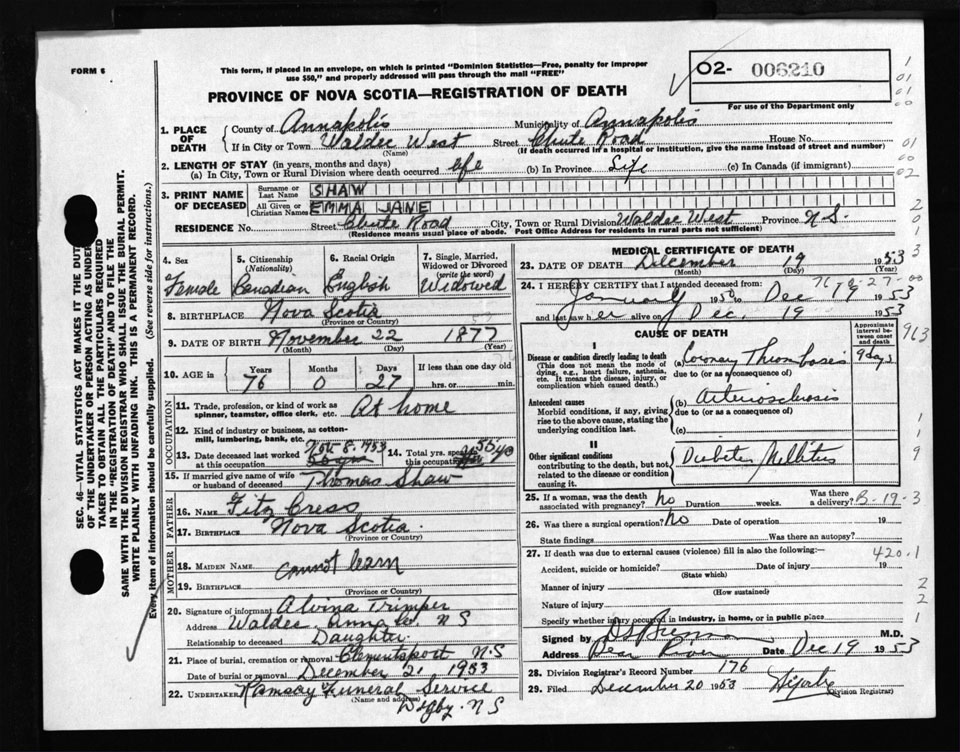 FORM 6
This form, if placed in an envelope, on which is printed "Dominion Statistics—Free, penalty for improper
use $50," and properly addressed will pass through the mail "FREE"
02- 006210
For use of the Department only
PROVINCE OF NOVA SCOTIA—REGISTRATION OF DEATH
1. PLACE OF DEATH
County of Annapolis Municipality of Annapolis
If in City or Town Waldec West Street Chute Road House No.
(Name) (If death occurred in a hospital or institution, give the name instead of street and number)
2. LENGTH OF STAY (in years, months and days)
(a) In City, Town or Rural Division where death occurred life (b) In Province Life (c) In Canada (if immigrant)
3. PRINT NAME OF DECEASED
Surname or Last Name SHAW
All Given or Christian Names EMMA JANE
RESIDENCE No. Street Chute Road City, Town or Rural Division Waldec West Province N.S.
(Residence means usual place of abode. Post Office Address for residents in rural parts not sufficient)
4. Sex
Female
5. Citizenship
(Nationality)
Canadian
6. Racial Origin
English
7. Single, Married,
Widowed or Divorced
(write the word)
Widowed
8. BIRTHPLACE Nova Scotia
(Province or Country)
9. DATE OF BIRTH November 22 1877
(Month) (Day) (Year)
10. AGE in Years Months Days If less than one day old
76 0 27 hrs. or min.
OCCUPATION
11. Trade, profession, or kind of work as
spinner, teamster, office clerk, etc. At home
12. Kind of industry or business, as cotton-
mill, lumbering, bank, etc.
13. Date deceased last worked
at this occupation Nov. 8. 1953
14. Total yrs. spent in
this occupation
15. If married give name of wife
or husband of deceased Thomas Shaw
FATHER
16. NAME Fitz Cress
17. BIRTHPLACE Nova Scotia.
(Province or Country)
MOTHER
18. MAIDEN NAME cannot learn
19. BIRTHPLACE
(Province or Country)
20. Signature of informant Alvina Trimper
Address Waldec Anna Co. N S
Relationship to deceased Daughter.
21. Place of burial, cremation or removal Clementsport N.S
Date of burial or removal December 21 1953
22. UNDERTAKER Ramsay Funeral Service
(Name and address)
Digby. N S
MEDICAL CERTIFICATE OF DEATH
23. DATE OF DEATH December 19 1953
(Month) (Day) (Year)
24. I HEREBY CERTIFY that I attended deceased from:
January 1953 to Dec 19 1953
and last saw her alive on Dec. 19 1953
CAUSE OF DEATH
Approximate
interval be-
tween onset
and death
I
Disease or condition directly leading to death
(This does not mean the mode of
dying, e.g., heart failure, asthenia,
etc. It means the disease, injury, or
complication which caused death.)
(a) Coronary Thrombosis 9 days
due to (or as a consequence of)
Antecedent causes
Morbid conditions, if any, giving
rise to the above cause, stating the
underlying condition last.
(b) Arteriosclerosis
due to (or as a consequence of)
(c)
II
Other significant conditions
contributing to the death, but not
related to the disease or condition
causing it.
Diabetes Mellitus
25. If a woman, was the death
associated with pregnancy? No Duration weeks. Was there
a delivery?
B-19-3
26. Was there a surgical operation? No Date of operation 19
State findings Was there an autopsy?
27. If death was due to external causes (violence) fill in also the following:—
420.1
Accident, suicide or homicide? Date of injury 19
(State which)
Manner of injury
(How sustained)
Nature of injury
Specify whether injury occurred in industry, in home, or in public place
Signed by M.D.
Address Bear River Date Dec 19 1953
28. Division Registrar's Record Number 176
29. Filed December 20 1953
(Division Registrar)
SEC. 46—VITAL STATISTICS ACT MAKES IT THE DUTY
OF THE UNDERTAKER OR PERSON ACTING AS UNDER-
TAKER TO OBTAIN ALL THE PARTICULARS REQUIRED
IN THE "REGISTRATION OF DEATH" AND TO FILE THE
SAME WITH THE DIVISION REGISTRAR WHO SHALL ISSUE THE BURIAL PERMIT.
WRITE PLAINLY WITH UNFADING INK. THIS IS A PERMANENT RECORD.
Every item of information should be carefully supplied. (See reverse side for instructions.)